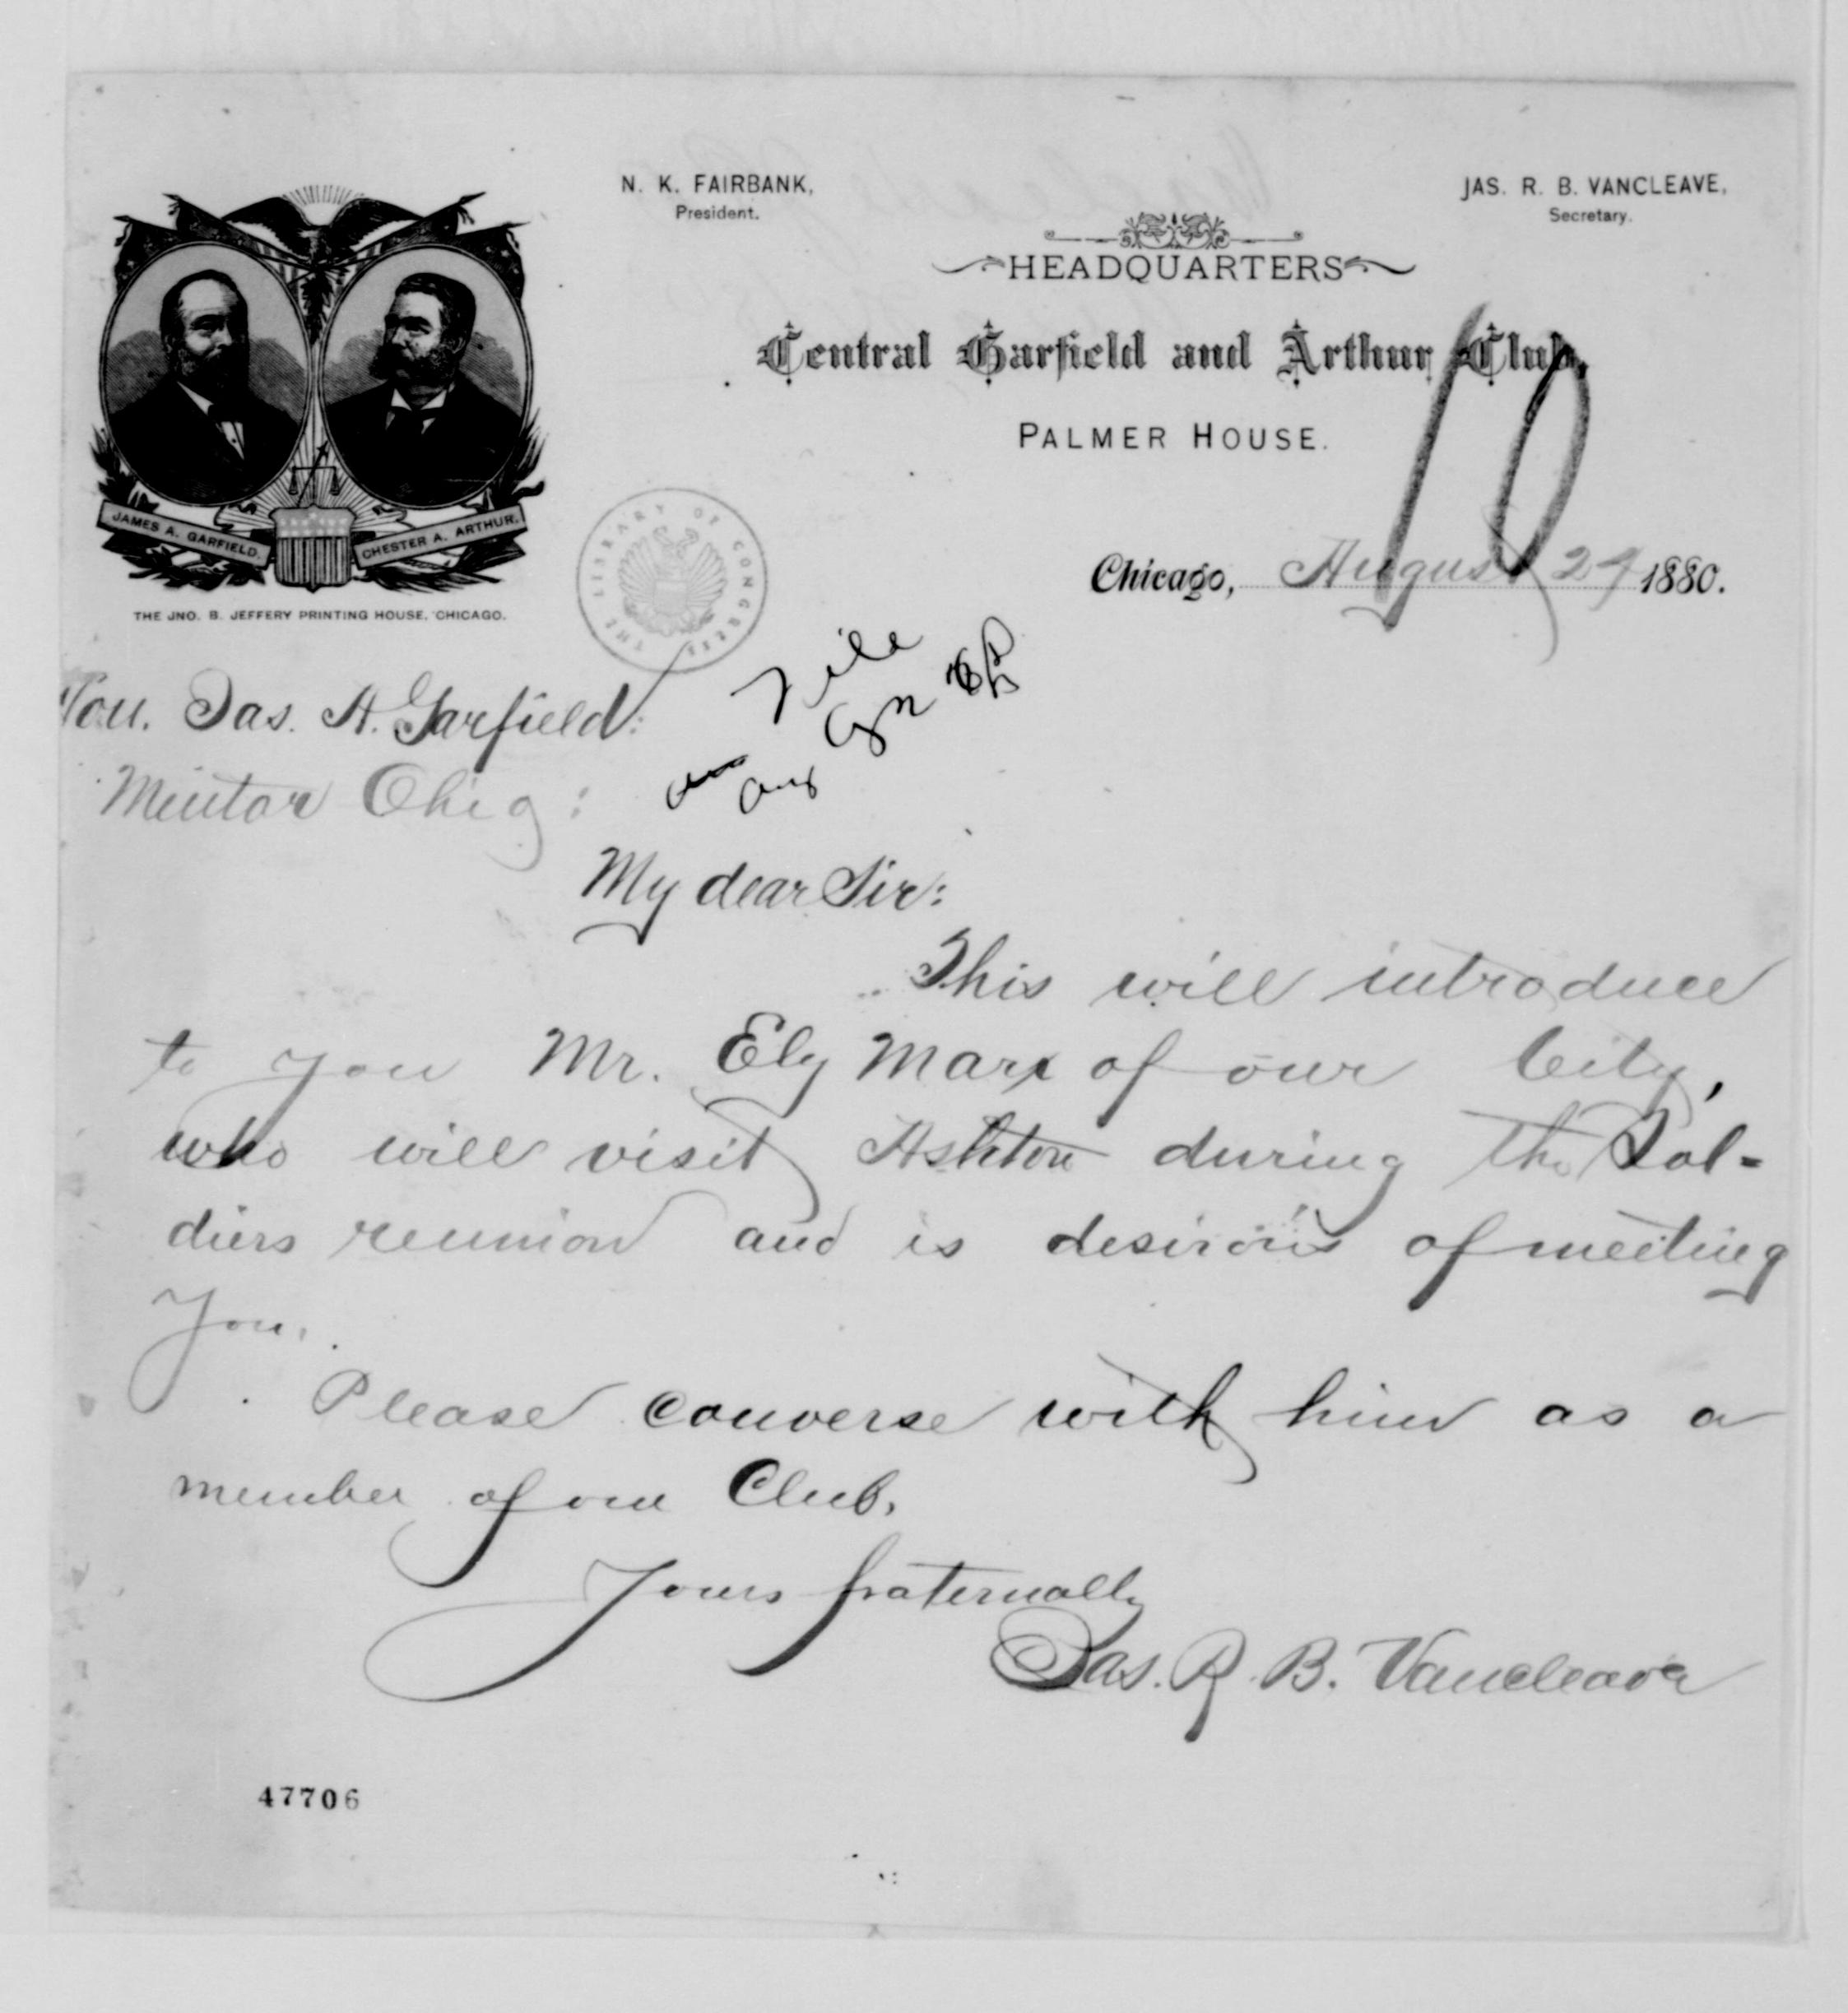 N. K. FAIRBANK,
President.
JAS. R. B. VANCLEAVE,
Secretary.
HEADQUARTERS
Central Garfield and Arthur Club,
PALMER HOUSE.
JAMES A. GARFIELD.
CHESTER A. ARTHUR.
THE JNO. B. JEFFERY PRINTING HOUSE, CHICAGO.
THE LIBRARY OF CONGRESS
Chicago, August 1880.
File
Hon. Jas. A. Garfield:
Mentor Ohio:
My dear Sir:
This will introduce
to you Mr. Ely Marx of our City,
who will visit Ashton during the Sol-
diers reunion and is desirous of meeting
you.
Please converse with him as a
member of our Club.
Yours fraternally
Jas. R. B. Vancleave
47706